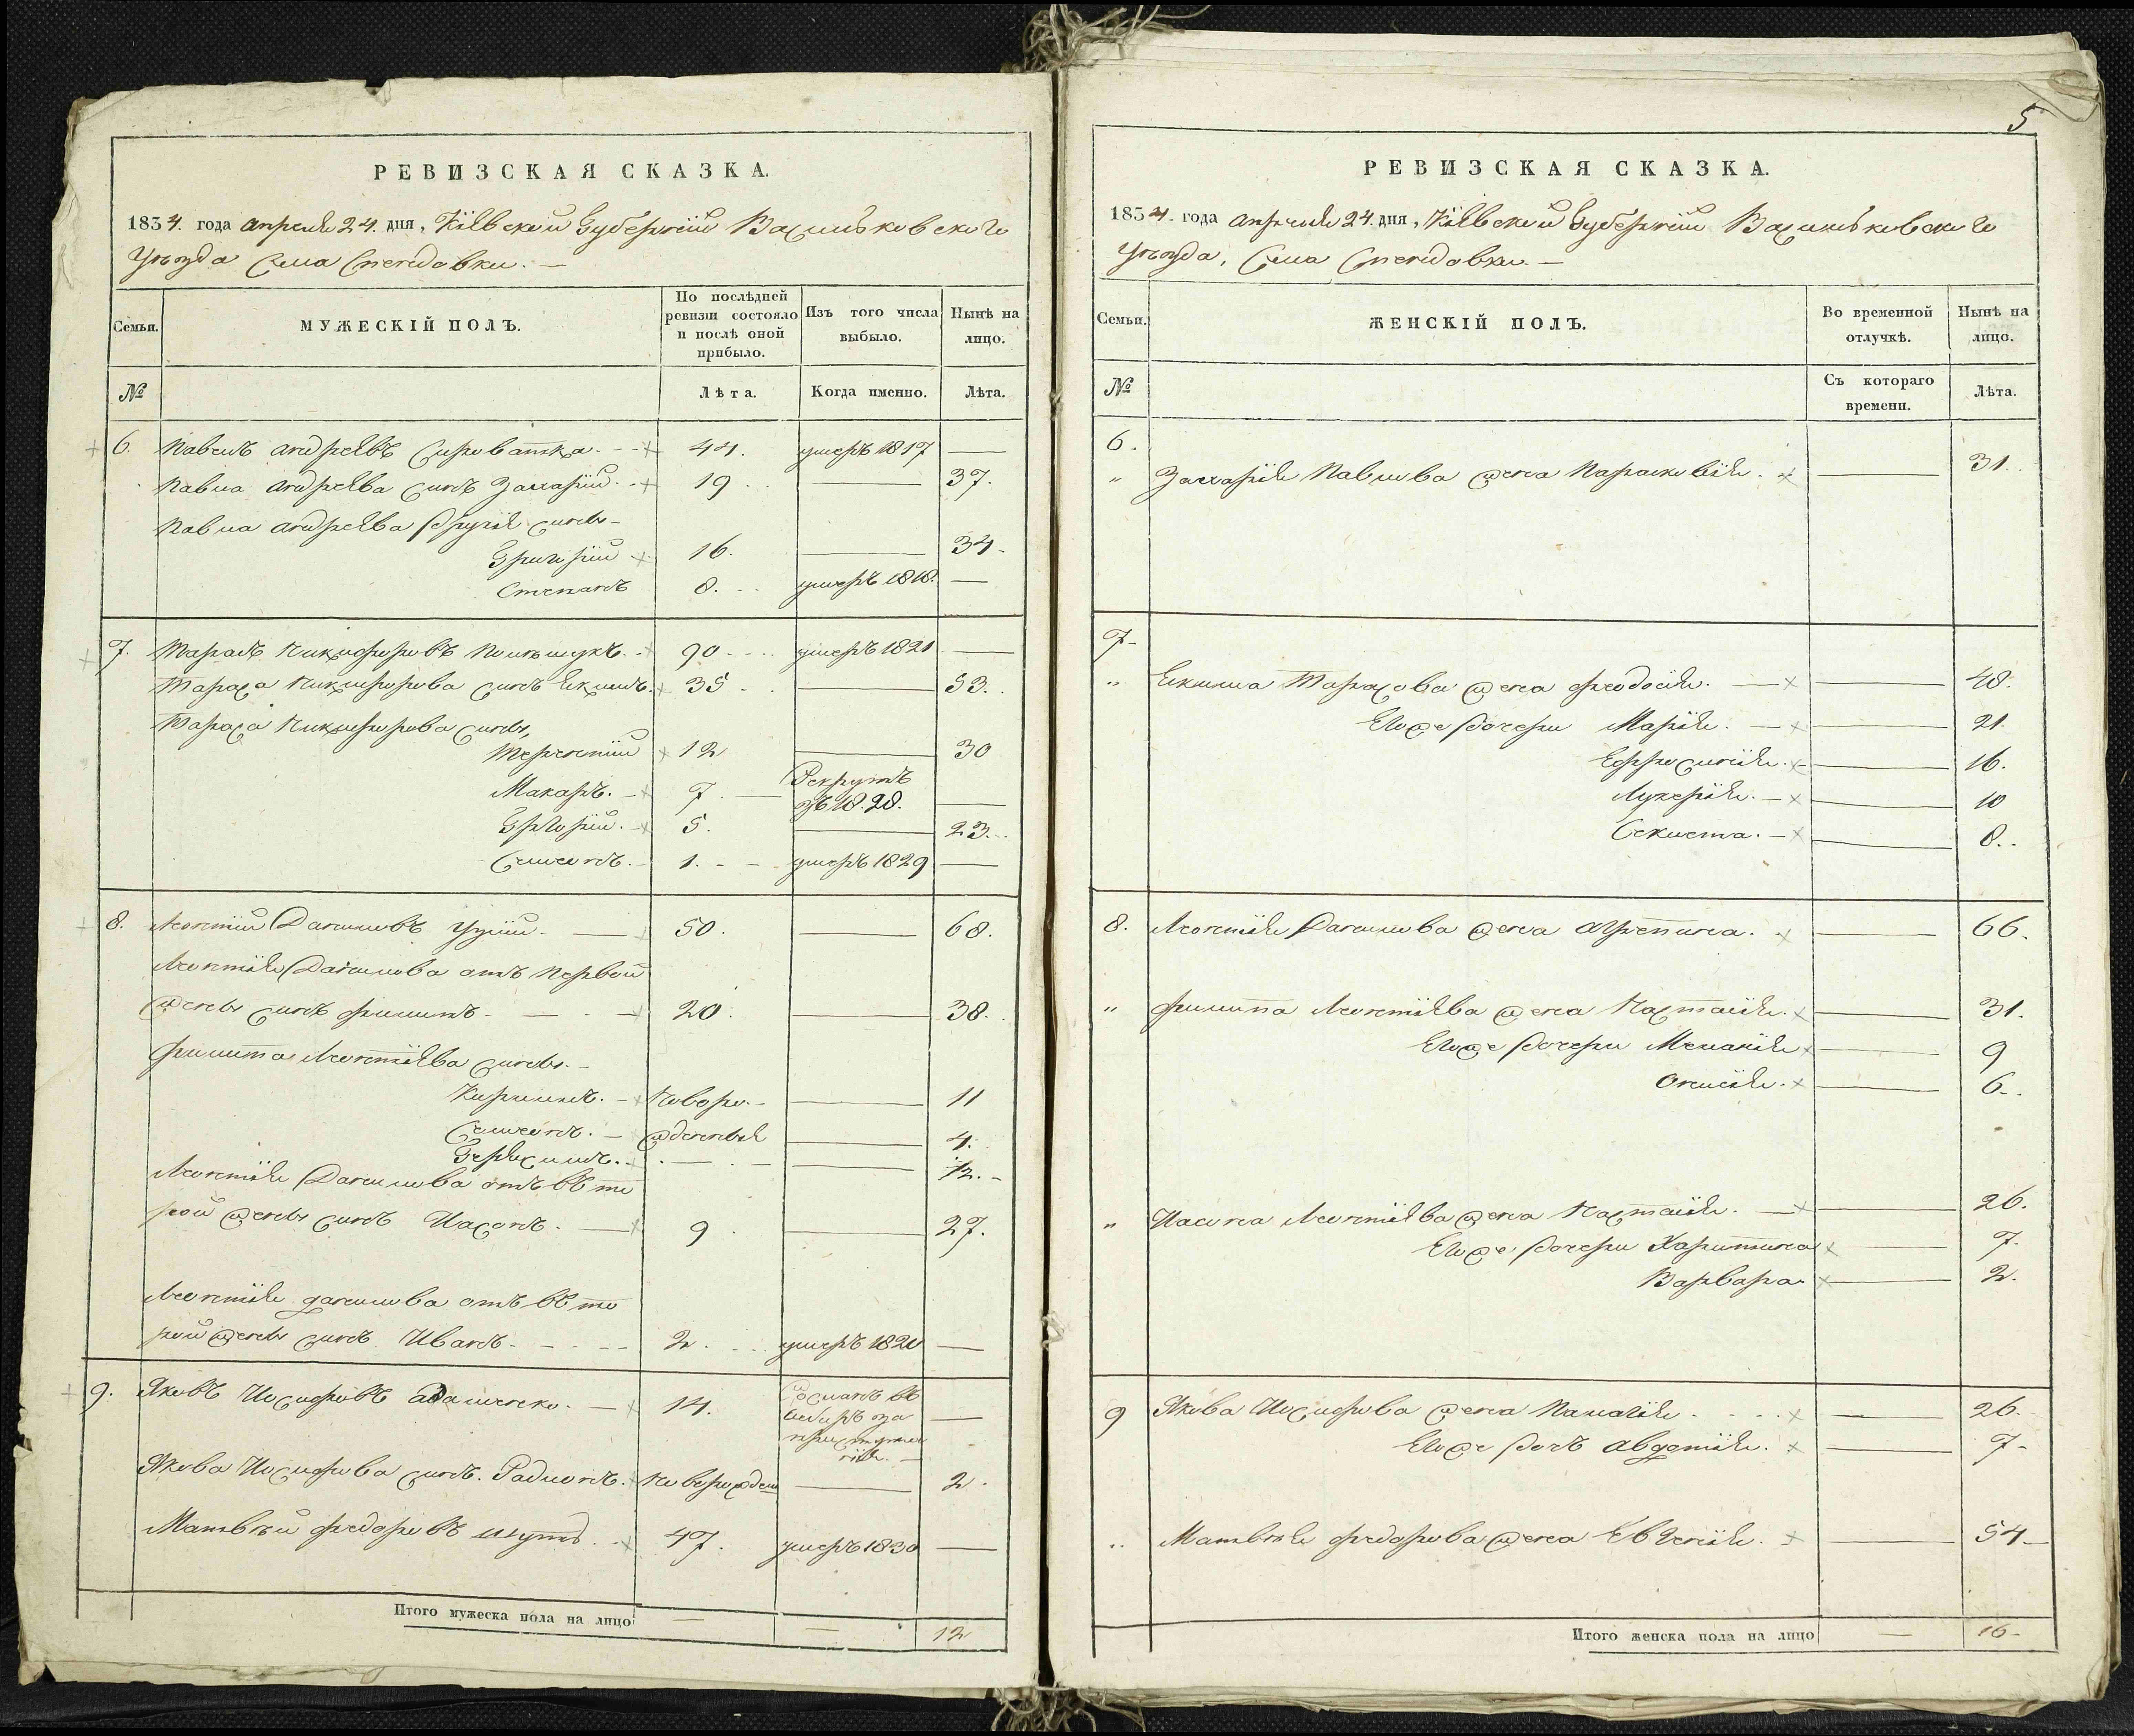 РЕВИЗСКАЯ СКАЗКА.
1834. года апреля 24. дня, Кіевской Губерніи Васильковского
Уезда Села Спендовки. —
Семьи.
МУЖЕСКІЙ ПОЛЪ.
По послѣдней ревизіи состояло и послѣ оной прибыло.
Изъ того числа выбыло.
Нынѣ на лицо.
№
Лѣта.
Когда именно.
Лѣта.
6. Павелъ Андреевъ Сироватка. 44. умеръ 1817 —
Павла Андреева сынъ Захарій. 19 — 37.
Павла Андреева другія сыны
Григорій 16. — 34.
Степанъ 8. умеръ 1818. —
7. Тарасъ Никифоровъ Полѣщукъ. 90 умеръ 1821 —
Тараса Никифорова сынъ Екимъ. 35 — 53.
Тараса Никифорова сыны,
Терентій 12 — 30
Макаръ. 7. Рекрутъ въ 18.28. —
Григорій. 5. — 23.
Семенъ. 1. умеръ 1829 —
8. Леонтій Даниловъ 50. — 68.
Леонтія Данилова отъ первой
жены сынъ Филипъ. 20. — 38.
Филипа Леонтіева сыны.
Кирилъ. Новоро- — 11
Семенъ. жденныя — 4.
Герасимъ. — — 12.
Леонтія Данилова отъ вто
рой жены сынъ Иасонъ. 9 — 27.
Леонтія Данилова отъ вто
рой жены сынъ Иванъ. 2. умеръ 1820 —
9. Яковъ Иосифовъ Адаменко. 14. Сосланъ въ Сибиръ за преступленія. —
Якова Иосифова сынъ. Радионъ. Новорожден — 2.
Матвѣй Федоровъ Шутъ. 47. умеръ 1830 —
Итого мужеска пола на лицо — — 12
5
РЕВИЗСКАЯ СКАЗКА.
1834. года апреля 24. дня, Кіевской Губерніи Васильковского
Уезда, Села Спендовки. —
Семьи.
ЖЕНСКІЙ ПОЛЪ.
Во временной отлучкѣ.
Нынѣ на лицо.
№
Съ котораго времени.
Лѣта.
6.
" Захарія Павлова жена Парасковія. — 31.
7.
" Екима Тарасова жена Феодосія. — 48.
Егоже дочери Марія. — 21.
Ефросинія. — 16.
Лукерія. — 10
Секлета. — 8.
8. Леонтія Данилова жена Агрепина. — 66.
" Филипа Леонтіева жена Настасія. — 31.
Егоже дочери Меланія — 9
Онисія. — 6.
" Иасона Леонтіева жена Настасія. — 26.
Егоже дочери Харитина — 7.
Варвара — 2.
9 Якова Иосифова жена Палагія. — 26.
Егоже дочъ Авдотія. — 7.
" Матвѣя Федорова жена Евгенія. — 54
Итого женска пола на лицо — 16